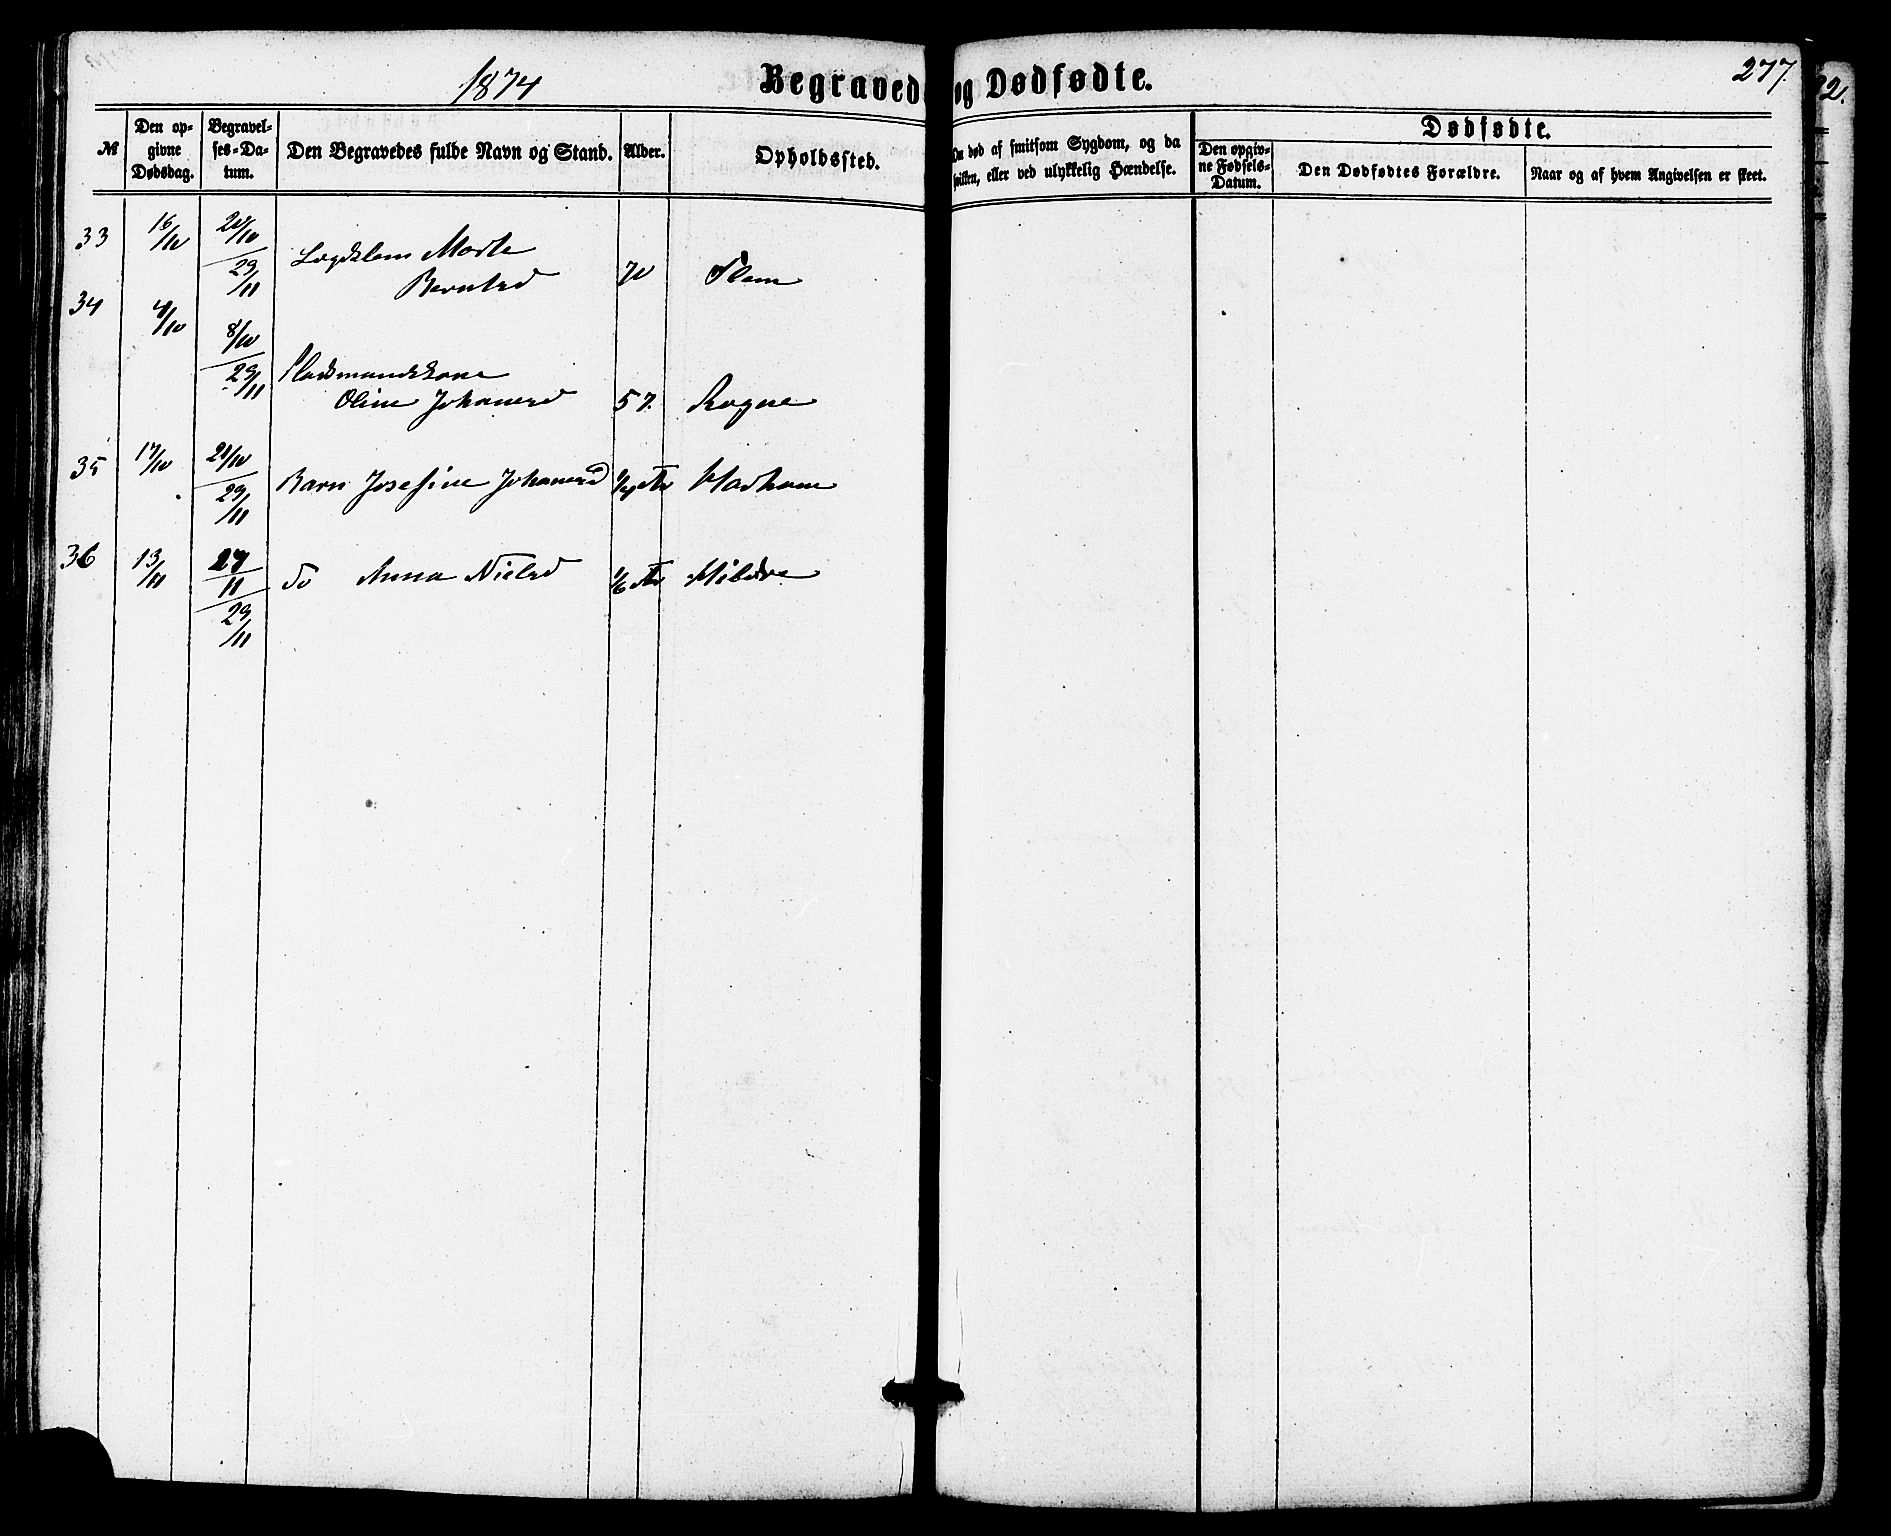 1874
Begravede og Dødfødte.
277
M
Den op-
givne
Dødsdag.
Begravel-
ses-Da-
tum.
Den Begravedes fulde Navn og Stand.
Alder.
Opholdssted.
død af smitsom Sygdom, og da
hvilken, eller ved ulykkelig Hændelse.
Dødfødte.
Den opgiv-
ne Fødsels-
Datum.
Den Dødfødtes Forældre.
Naar og af hvem Angivelsen er skeet.
33 16/10 Lægdslem Marte
29/11 Berntsd 70 Flem
34 4/10 8/10
29/11 Pladsmandskone
Oline Johansd 57. Rogne
35 17/10
29/11 Barn Josefine Johansd 1/4 Aar
36 13/11 27/11 Do Anna Nielsd 1/6 Aar Hildre
29/11
2.